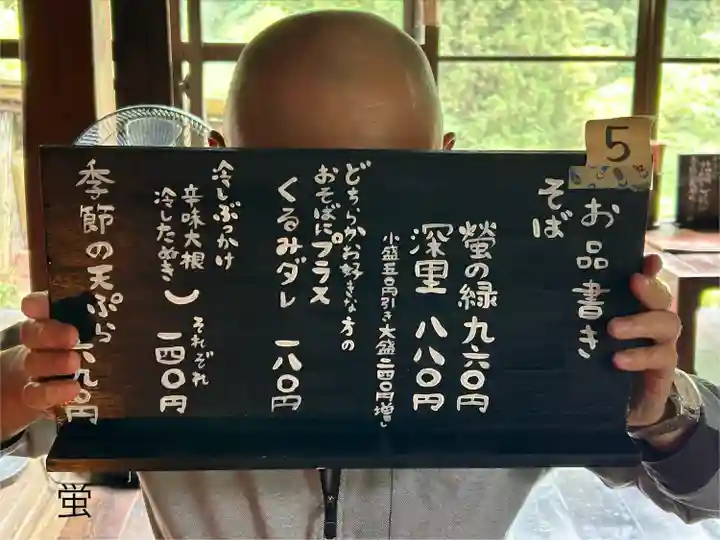 5
お品書き
そば
螢の緑 九六〇円
深里 八八〇円
小盛五〇円引き 大盛二四〇円増し
どちらかお好きな方の
おそばにプラス
くるみダレ 一八〇円
冷しぶっかけ
辛味大根
冷したぬき
それぞれ
一一四〇円
季節の天ぷら 六九〇円
蛍